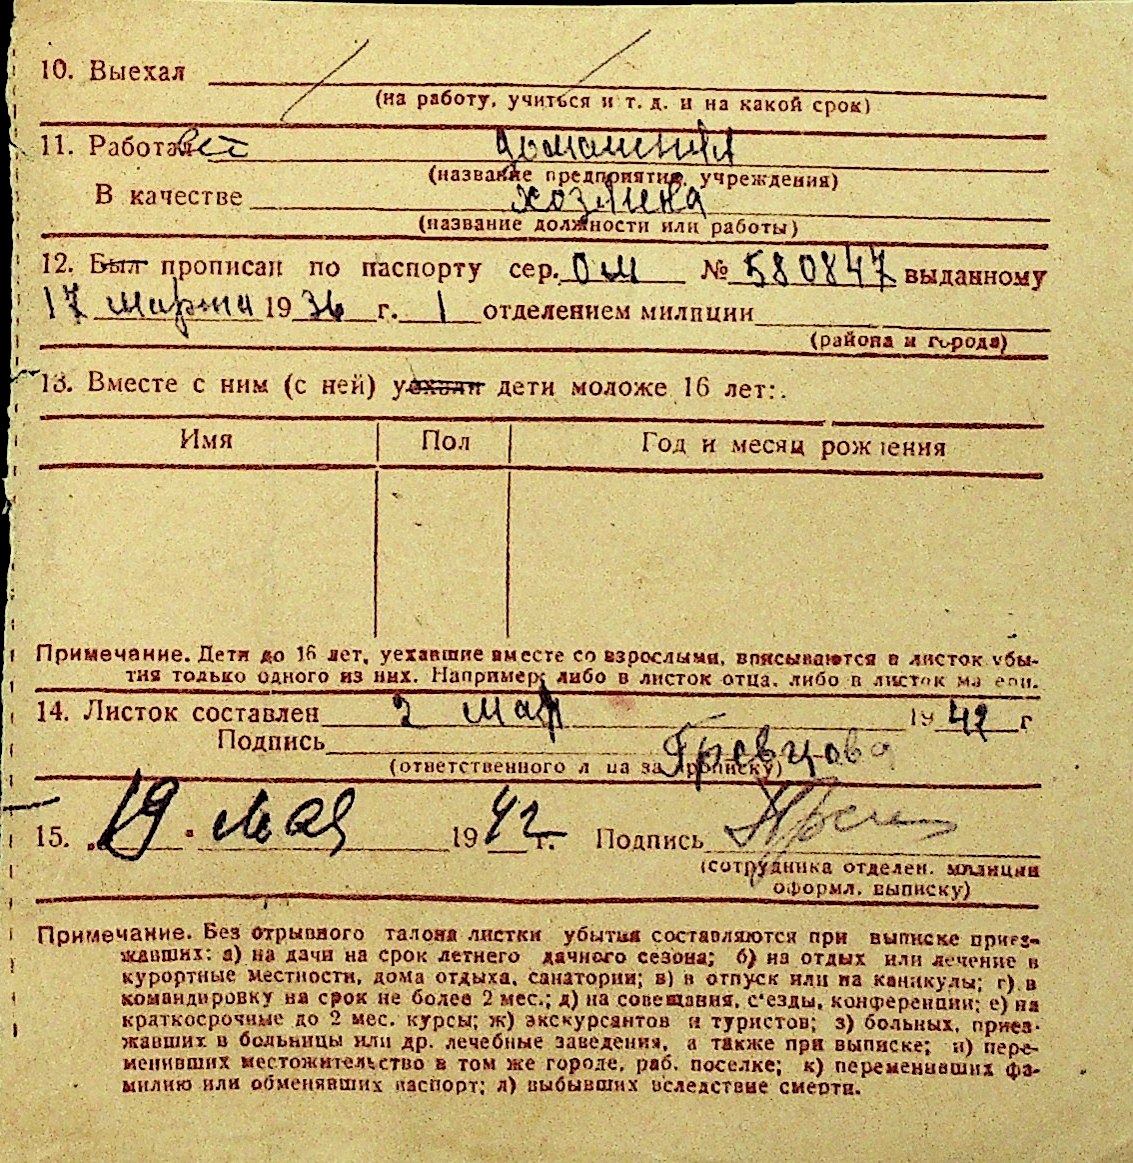 10. Выехал
(на работу, учиться и т. д. и на какой срок)
11. Работает домашняя
(название предприятия, учреждения)
В качестве хозяика
(название должности или работы)
12. Был прописан по паспорту сер. ОМ № 580847 выданному
17 марта 1936 г. 1 отделением милиции
(района и города)
13. Вместе с ним (с ней) уехали дети моложе 16 лет:
Имя Пол Год и месяц рождения
Примечание. Дети до 16 лет, уехавшие вместе со взрослыми, вписываются в листок убы-
тия только одного из них. Например: либо в листок отца, либо в листок матери.
14. Листок составлен 2 мая 1942 г
Подпись Гревцова
(ответственного лица за прописку)
15. „19" мая 1942 г. Подпись
(сотрудника отделен. милиции
оформл. выписку)
Примечание. Без отрывного талона листки убытия составляются при выписке приез-
жавших: а) на дачи на срок летнего дачного сезона; б) на отдых или лечение в
курортные местности, дома отдыха, санатории; в) в отпуск или на каникулы; г) в
командировку на срок не более 2 мес.; д) на совещания, с'езды, конференции; е) на
краткосрочные до 2 мес. курсы; ж) экскурсантов и туристов; з) больных, приез-
жавших в больницы или др. лечебные заведения, а также при выписке; и) пере-
менивших местожительство в том же городе, раб. поселке; к) переменивших фа-
милию или обменявших паспорт; л) выбывших вследствие смерти.